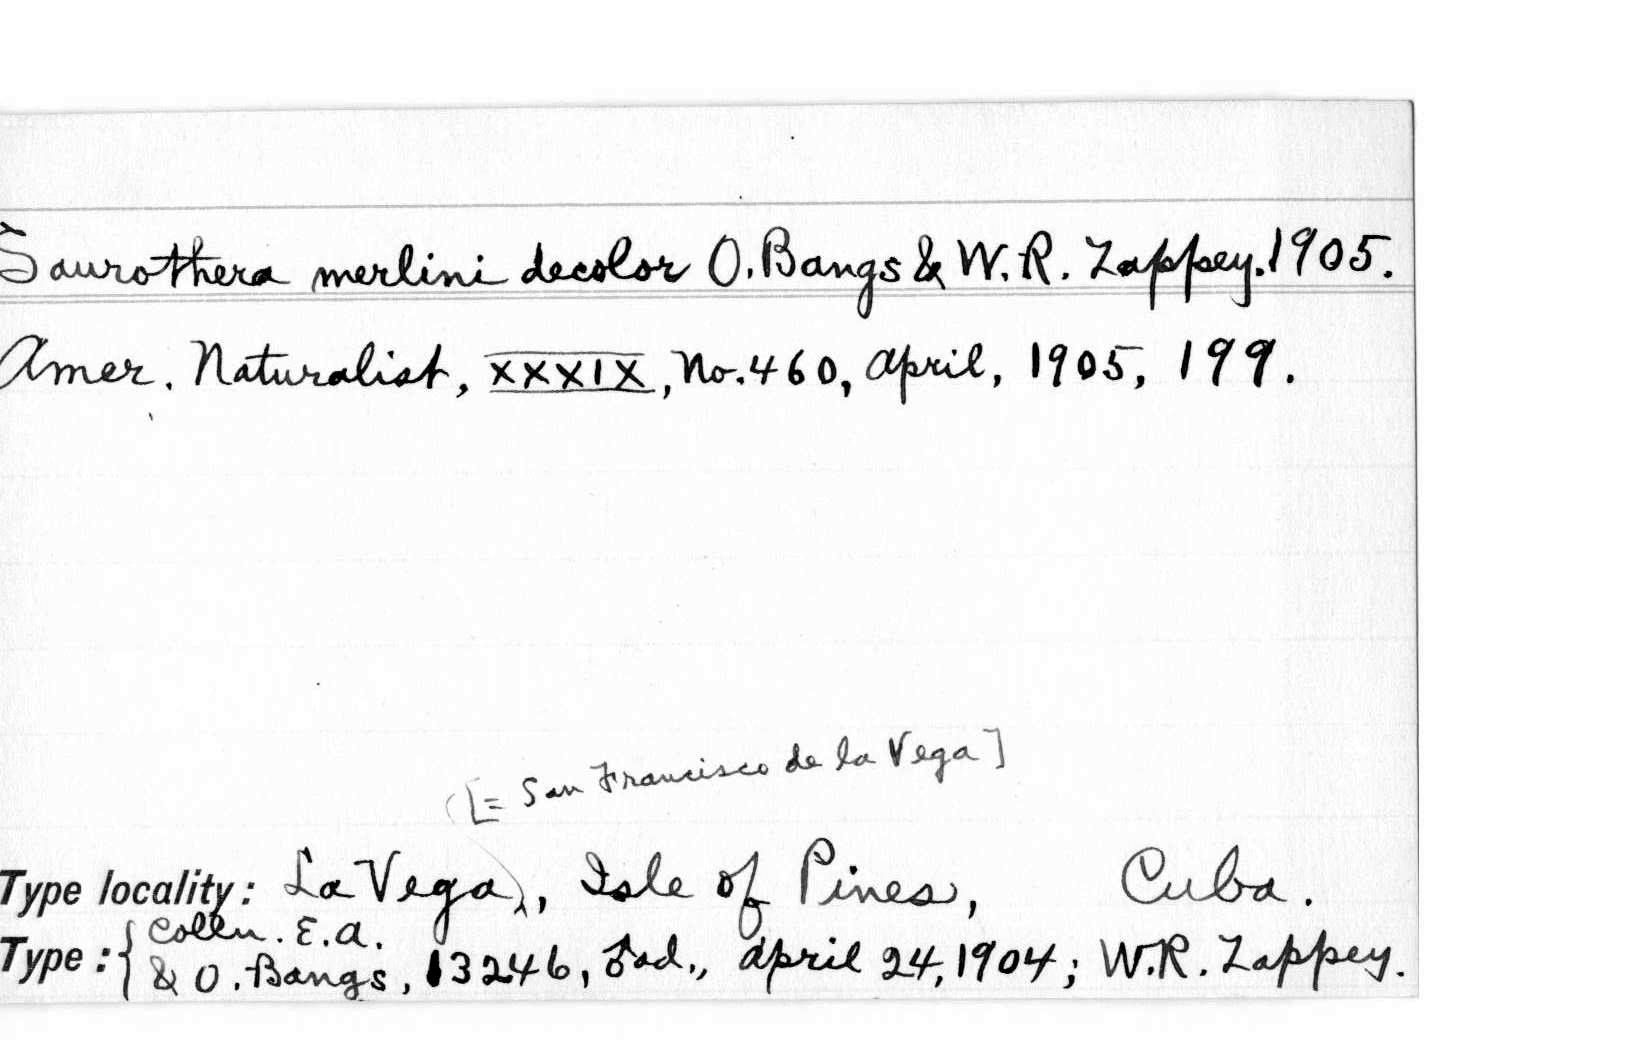 Saurothera merlini decolor O. Bangs & W. R. Zappey. 1905.
Amer. Naturalist, XXXIX, No. 460, April, 1905, 199.
[= San Francisco de la Vega]
Type locality: La Vega, Isle of Pines, Cuba.
Type: { Colln. E. A.
& O. Bangs, 13246, ♂ ad., April 24, 1904; W. R. Zappey.